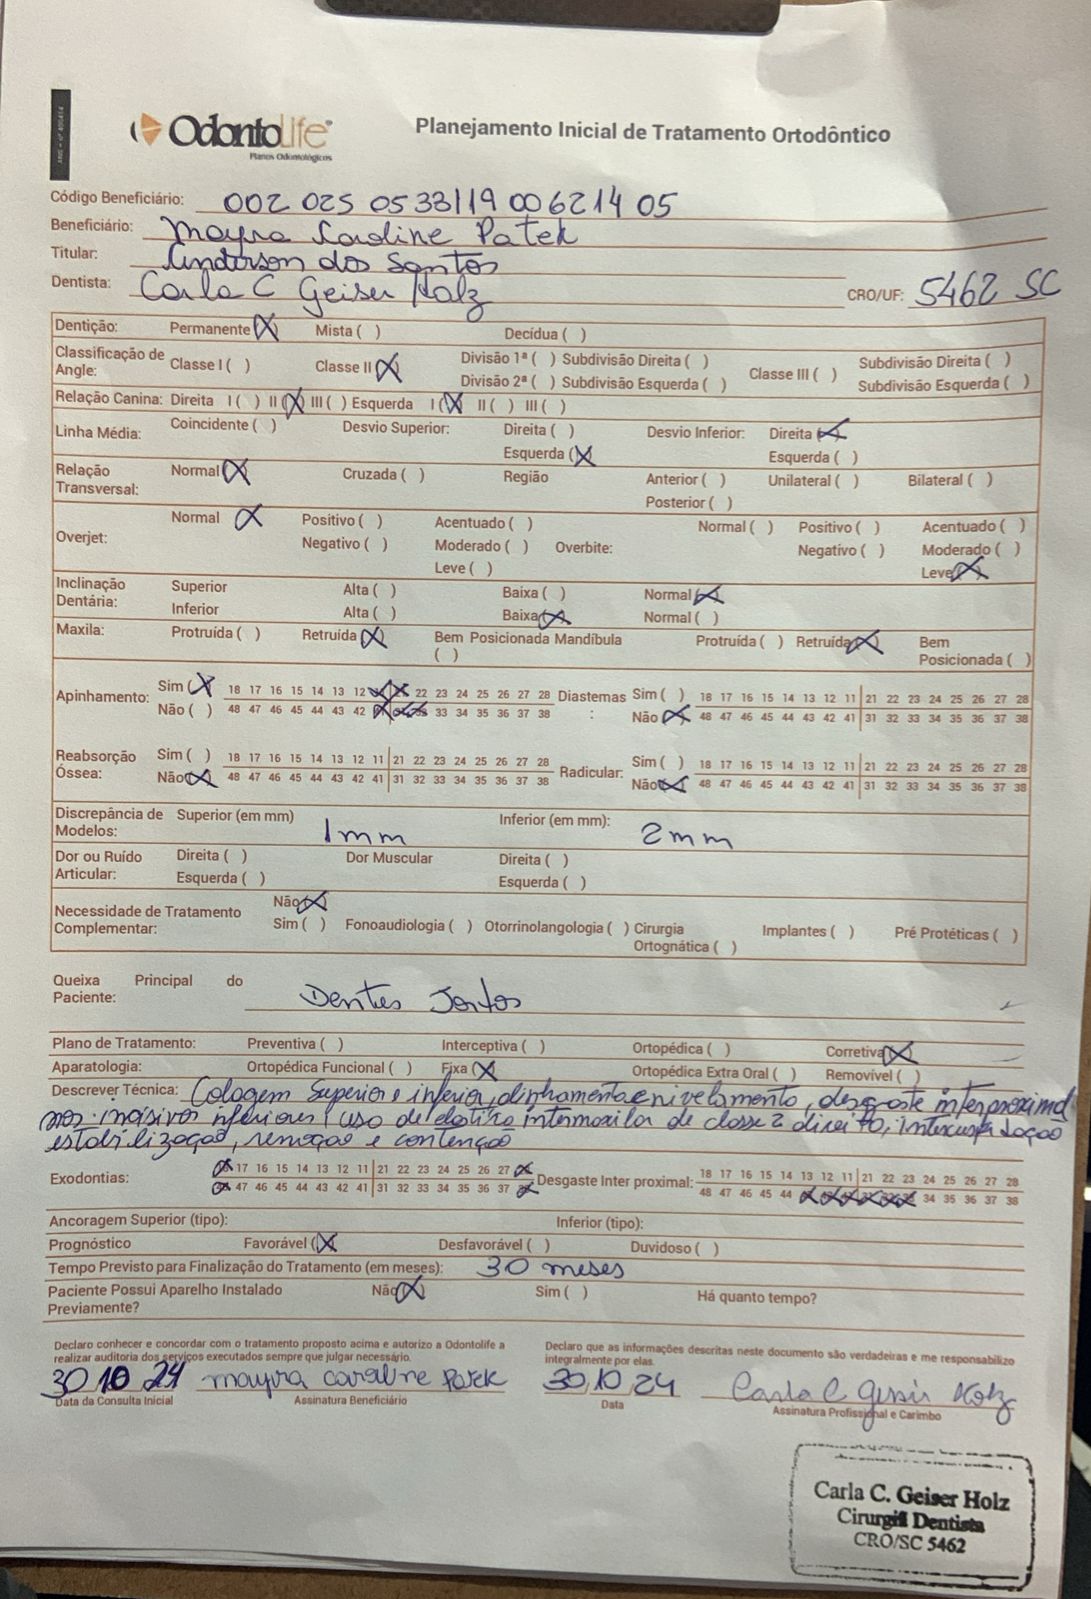 OdontoLife
Planos Odontológicos
Planejamento Inicial de Tratamento Ortodôntico
Código Beneficiário: 002 025 0533119 00 6214 05
Beneficiário: Mayra Caroline Patek
Titular: Anderson dos Santos
Dentista: Carla C Geiser Holz CRO/UF: 5462 SC
Dentição: Permanente (X) Mista ( ) Decídua ( )
Classificação de Angle: Classe I ( ) Classe II (X) Divisão 1ª ( ) Subdivisão Direita ( ) Classe III ( ) Subdivisão Direita ( )
Divisão 2ª ( ) Subdivisão Esquerda ( ) Subdivisão Esquerda ( )
Relação Canina: Direita I ( ) II (X) III ( ) Esquerda I (X) II ( ) III ( )
Linha Média: Coincidente ( ) Desvio Superior: Direita ( ) Desvio Inferior: Direita (X)
Esquerda (X) Esquerda ( )
Relação Transversal: Normal (X) Cruzada ( ) Região Anterior ( ) Unilateral ( ) Bilateral ( )
Posterior ( )
Overjet: Normal (X) Positivo ( ) Acentuado ( ) Overbite: Normal ( ) Positivo ( ) Acentuado ( )
Negativo ( ) Moderado ( ) Negativo ( ) Moderado ( )
Leve ( ) Leve (X)
Inclinação Dentária: Superior Alta ( ) Baixa ( ) Normal (X)
Inferior Alta ( ) Baixa (X) Normal ( )
Maxila: Protruída ( ) Retruída (X) Bem Posicionada ( ) Mandíbula Protruída ( ) Retruída (X) Bem Posicionada ( )
Apinhamento: Sim (X) 18 17 16 15 14 13 12 22 23 24 25 26 27 28 Diastemas: Sim ( ) 18 17 16 15 14 13 12 11 21 22 23 24 25 26 27 28
Não ( ) 48 47 46 45 44 43 42 33 34 35 36 37 38 Não (X) 48 47 46 45 44 43 42 41 31 32 33 34 35 36 37 38
Reabsorção Óssea: Sim ( ) 18 17 16 15 14 13 12 11 21 22 23 24 25 26 27 28 Radicular: Sim ( ) 18 17 16 15 14 13 12 11 21 22 23 24 25 26 27 28
Não (X) 48 47 46 45 44 43 42 41 31 32 33 34 35 36 37 38 Não (X) 48 47 46 45 44 43 42 41 31 32 33 34 35 36 37 38
Discrepância de Modelos: Superior (em mm) 1mm Inferior (em mm): 2mm
Dor ou Ruído Articular: Direita ( ) Dor Muscular Direita ( )
Esquerda ( ) Esquerda ( )
Necessidade de Tratamento Complementar: Não (X)
Sim ( ) Fonoaudiologia ( ) Otorrinolangologia ( ) Cirurgia Ortognática ( ) Implantes ( ) Pré Protéticas ( )
Queixa Principal do Paciente: Dentes Tortos
Plano de Tratamento: Preventiva ( ) Interceptiva ( ) Ortopédica ( ) Corretiva (X)
Aparatologia: Ortopédica Funcional ( ) Fixa (X) Ortopédica Extra Oral ( ) Removível ( )
Descrever Técnica: Colagem Superior e inferior, alinhamento e nivelamento, desgaste interproximal
nos incisivos inferiores, uso de elástico intermaxilar de classe 2 direito, intercuspidação
estabilização, remoção e contenção
Exodontias: 17 16 15 14 13 12 11 21 22 23 24 25 26 27 Desgaste Inter proximal: 18 17 16 15 14 13 12 11 21 22 23 24 25 26 27 28
47 46 45 44 43 42 41 31 32 33 34 35 36 37 48 47 46 45 44 34 35 36 37 38
Ancoragem Superior (tipo): Inferior (tipo):
Prognóstico Favorável (X) Desfavorável ( ) Duvidoso ( )
Tempo Previsto para Finalização do Tratamento (em meses): 30 meses
Paciente Possui Aparelho Instalado Previamente? Não (X) Sim ( ) Há quanto tempo?
Declaro conhecer e concordar com o tratamento proposto acima e autorizo a Odontolife a
realizar auditoria dos serviços executados sempre que julgar necessário.
Declaro que as informações descritas neste documento são verdadeiras e me responsabilizo
integralmente por elas.
30 10 24 mayra caroline Patek 30,10,24 Carla C Geiser Holz
Data da Consulta Inicial Assinatura Beneficiário Data Assinatura Profissional e Carimbo
Carla C. Geiser Holz
Cirurgiã Dentista
CRO/SC 5462